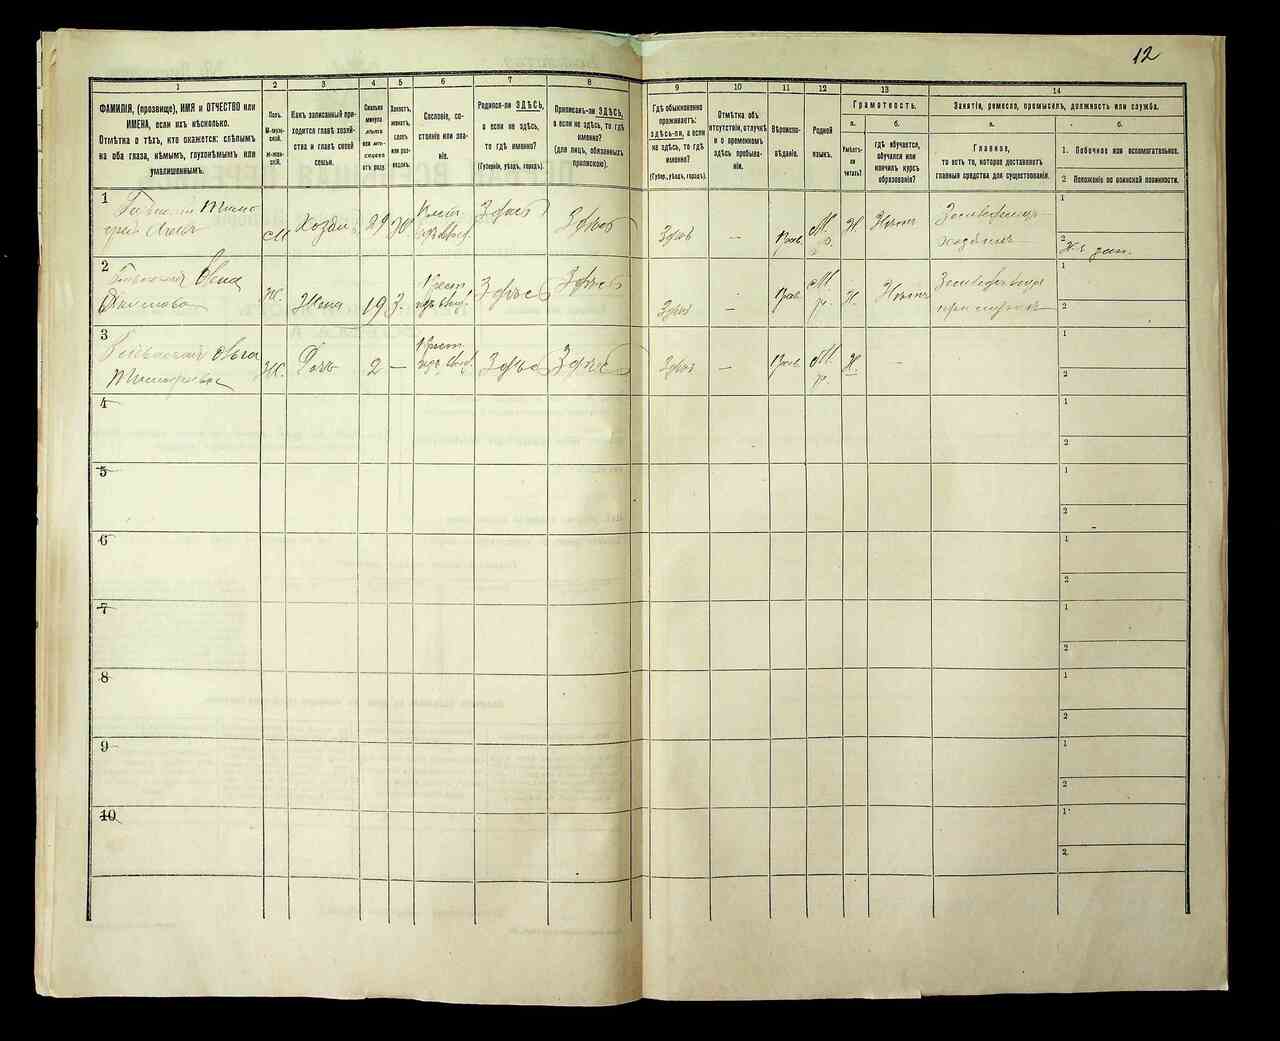 12
1 2 3 4 5 6 7 8 9 10 11 12 13 14
ФАМИЛІЯ, (прозвище), ИМЯ и ОТЧЕСТВО или
ИМЕНА, если ихъ нѣсколько.
Отмѣтка о тѣхъ, кто окажется: слѣпымъ
на оба глаза, нѣмымъ, глухонѣмымъ или
умалишеннымъ.
Полъ.
М-мужской.
Ж-женскій.
Какъ записанный приходится
главѣ хозяйства
и главѣ своей
семьи.
Сколько
минуло
лѣтъ
или мѣсяцевъ
отъ роду.
Холостъ,
женатъ,
вдовъ
или разведенъ.
Сословіе, состояніе
или званіе.
Родился-ли ЗДѢСЬ,
а если не здѣсь,
то гдѣ именно?
(Губернія, уѣздъ, городъ).
Приписанъ-ли ЗДѢСЬ,
а если не здѣсь, то гдѣ
именно?
(для лицъ, обязанныхъ
припискою).
Гдѣ обыкновенно
проживаетъ:
ЗДѢСЬ-ли, а если
не здѣсь, то гдѣ
именно?
(Губер., уѣздъ, городъ).
Отмѣтка объ
отсутствіи, отлучкѣ
и о временномъ
здѣсь пребываніи.
Вѣроисповѣданіе.
Родной
языкъ.
Грамотность.
а. б.
Умѣетъ-ли
читать?
гдѣ обучается,
обучался или
кончилъ курсъ
образованія?
Занятіе, ремесло, промыселъ, должность или служба.
а. б.
Главное,
то есть то, которое доставляетъ
главныя средства для существованія.
1. Побочное или вспомогательное.
2. Положеніе по воинской повинности.
1
М Хозяинъ 29 Ж Крест. Здѣсь Здѣсь Здѣсь — Прав. М. р. Н Нѣтъ
1
2
2
Анна
Ж. Жена 19 З. Крест. Здѣсь Здѣсь Здѣсь — Прав. М. р. Н. Нѣтъ
1
2
3
Ольга
Тимофѣева
Ж. Дочь 2 — Крест. Здѣсь Здѣсь Здѣсь — Прав. М. р. Н. —
1
2
4 1
2
5 1
2
6 1
2
7 1
2
8 1
2
9 1
2
10 1
2